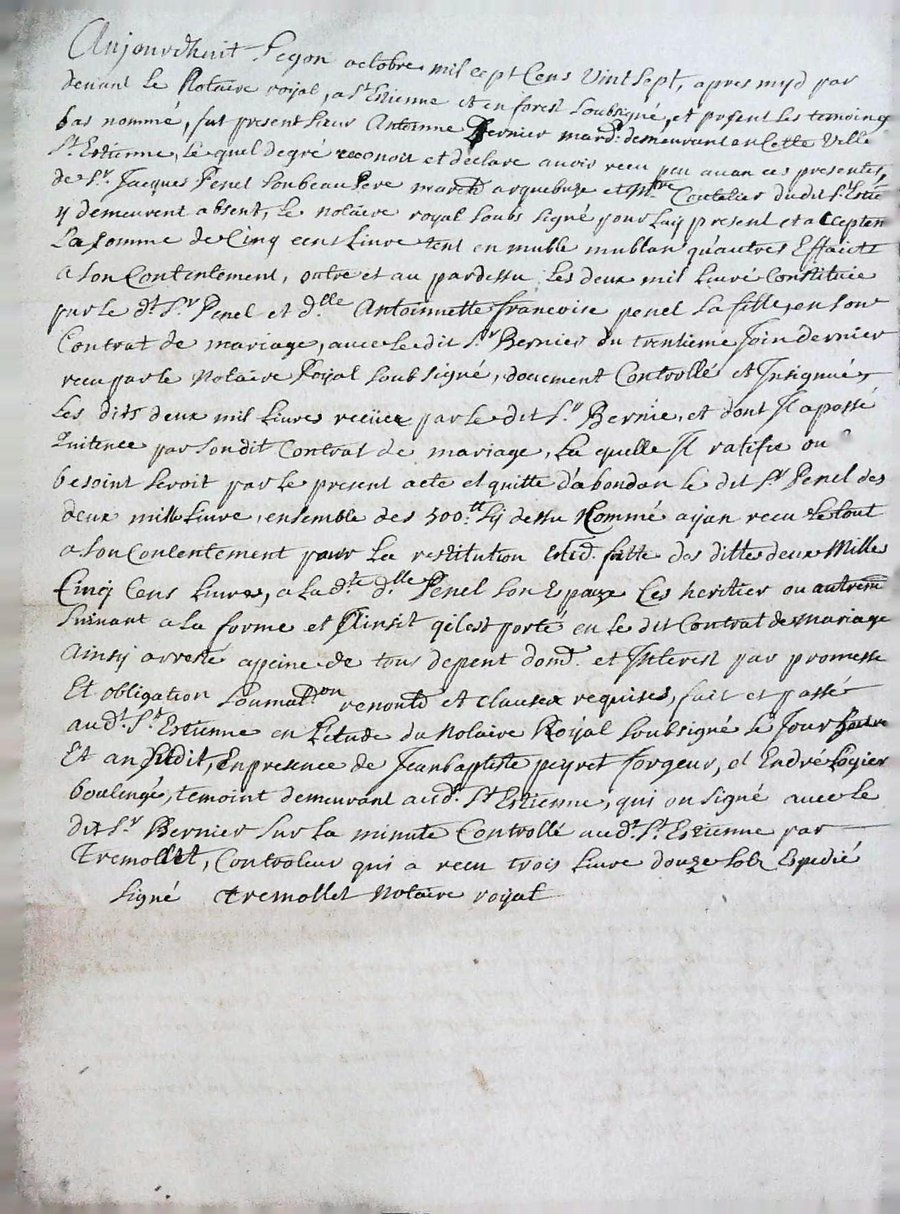 Aujourdhuit segon octobre mil cept Cens vint sept, apres myd par
devant Le Notaire royal, a St Estienne et en forest soubsigné, et présent Les temoing
bas nommé, fut present sieur Antoinne Bernier mard. demeurant en Cette ville
St. Estienne, le quel degré reconoit et declare avoir receu peu avan ces presentes,
de Sr. Jacques Penel son beau Pere march.d arquebuze et Mtre Coutelier du dit St Estie
y demeurent absent, Le Notaire royal soubs signé pour Luy present et accepten
La somme de Cinq cens Livre tent en muble mublan qu'autres Effaicts
a son Contentement, outre et au pardessu Les deux mil Livre Constituée
par le dt. Sr Penel et d.lle Antoinnette francoise penel sa fille, en son
Contrat de mariage, avec le dit Sr Bernier du trentieme Join dernier
receu par le Notaire Royal soubsigné, documment Controllé et Insignué,
Les dits deux mil Livres reçüez par le dit Sr Bernie, et dont Il a passé
Quitence par son dit Contrat de mariage, La quelle Il ratifie ou
besoint seroit par le present acte et quitte d'abondan le dit Sr Penel des
deux mille Livre, ensemble des 500.tt sy dessu Nommé aijan receu le tout
a son Contentement pour La restitution Estd. faitte des dittes deux Mille
Cinq Cens Livres, a la dte. d.lle Penel son Epouze Ces heritier ou autrem
suivant a la forme et Ainsit qilest porté en le dit Contrat de mariage
ainsy arresté appeine de tous depent dom.d et Interest par promesse
Et obligation soumat.on renontd et clauses requises, fait et passé
audt. St Estienne en L'etude du Notaire Royal soubsigné Le Jour
Et an susdit, En presence de Jean baptiste peyret forgeur, et André Logier
boulengé, temoint demeurant aud. St Estienne, qui on signé avec le
dit Sr Bernier sur La minute Controllé audt. St. Estienne par
Tremollet, Controleur qui a receu trois Livre douze solz Expedié
signé Tremollet Notaire royal